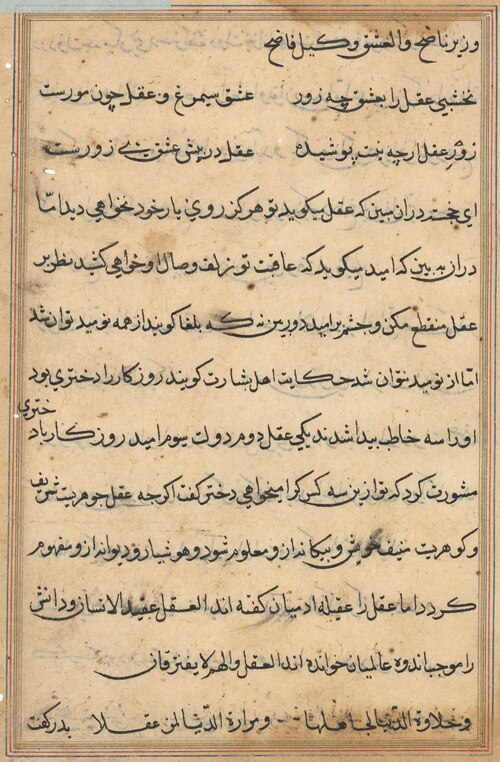 وزیر ناصح والعشق وکیل فاضح
نخشبی عقل را بعشق چه زور عشق سیمرغ و عقل چون مورست
زور عقل ارچه هست پوشیده عقل در پیش عشق بی زورست
ای خجسته دران مبین که عقل میکوید تو هرکز روی یار خود نخواهی دید امّا
دران به بین که امید میکوید که عاقبت تو زلف وصال او خواهی کشید نظر بر
عقل منقطع مکن و چشم بر امید دور بین نه که بلغا کویند از همه نومید توان شد
امّا از نومید نتوان شد حکایت اهل بشارت کویند روزکار را دختری بود
او را سه خاطب پیدا شدند یکی عقل دوم دولت سیوم امید روزکار با دختری
مشورت کرد که تو ازین سه کس کرا میخواهی دختر کفت اکرچه عقل جوهریست شریف
و کوهریست منیف خویش و بیکانه ازو معلوم شود و هوشیار و دیوانه ازو مفهوم
کردد اما عقل را عقیله ادمیان کفته اند العقل عقیلة الانسان و دانش
را موجب اندوه عالمیان خوانده اند العقل والهم لا یفترقان
وحلاوة الدنیا لجاهلها ومرارة الدنیا لمن عقلا پدر کفت